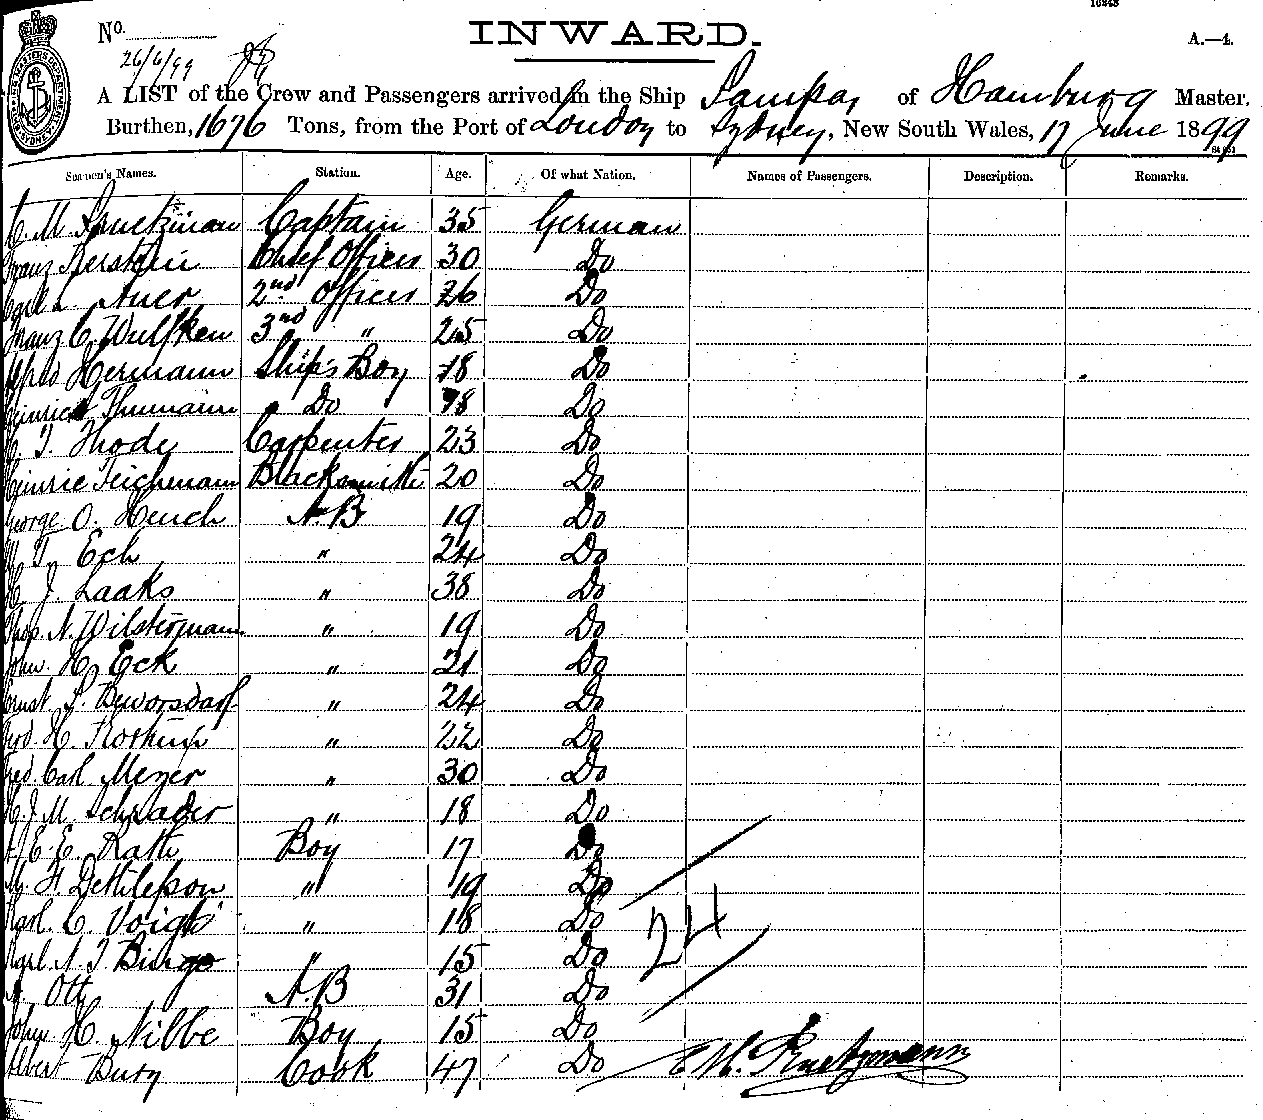 16248
No.
26/6/99
INWARD.
A.—4.
A LIST of the Crew and Passengers arrived in the Ship Pampa, of Hamburg Master,
Burthen, 1676 Tons, from the Port of London to Sydney, New South Wales, 17 June 1899
Seamen's Names. Station. Age. Of what Nation. Names of Passengers. Description. Remarks.
C. M. Captain 35 German
Franz Kerstein Chief Officer 30 Do
Auer 2nd Officer 26 Do
Franz C. Wulfken 3rd " 25 Do
Alfred Hermann Ship's Boy 18 Do
Heinrich Thumann Do 18 Do
T. Thode Carpenter 23 Do
Heinric Teichmann Blacksmith 20 Do
George O. Hench A.B 19 Do
T. Ech " 24 Do
H. J. Laaks " 38 Do
Thos. N. Wilstermann " 19 Do
John. H. Eck " 21 Do
Ernst L. Beworsdarf " 24 Do
Ferd. H. " 22 Do
Fred. Carl Meyer " 30 Do
H. J. M. Schrader " 18 Do
E. E. Rath Boy 17 Do
H. " 19 Do
Karl. C. Voigt " 18 Do
24
Karl. A. J. " 15 Do
Otto A.B 31 Do
John H. Nibbe Boy 15 Do
Albert Bury Cook 47 Do